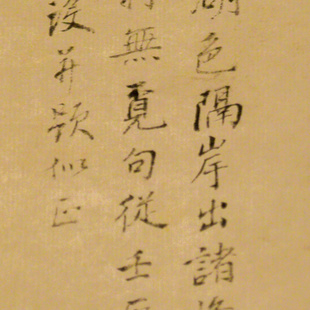 色隔岸出諸
無覓句從壬
設并題似正